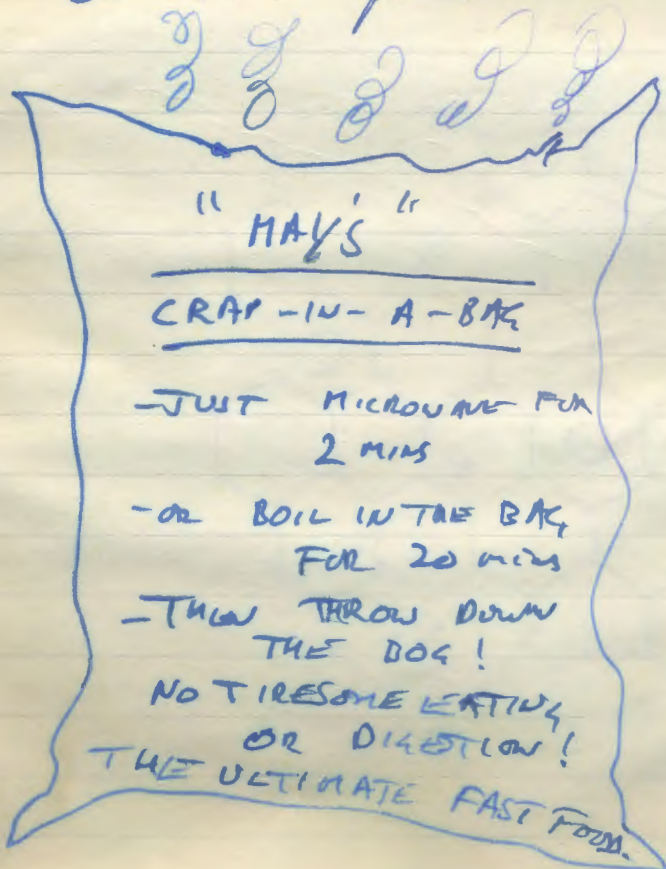 "MAY'S"
CRAP-IN-A-BAG
-JUST MICROWAVE FOR
2 MINS
-OR BOIL IN THE BAG,
FOR 20 mins
-THEN THROW DOWN
THE BOG!
NO TIRESOME EATING
OR DIGESTION!
THE ULTIMATE FAST FOOD.